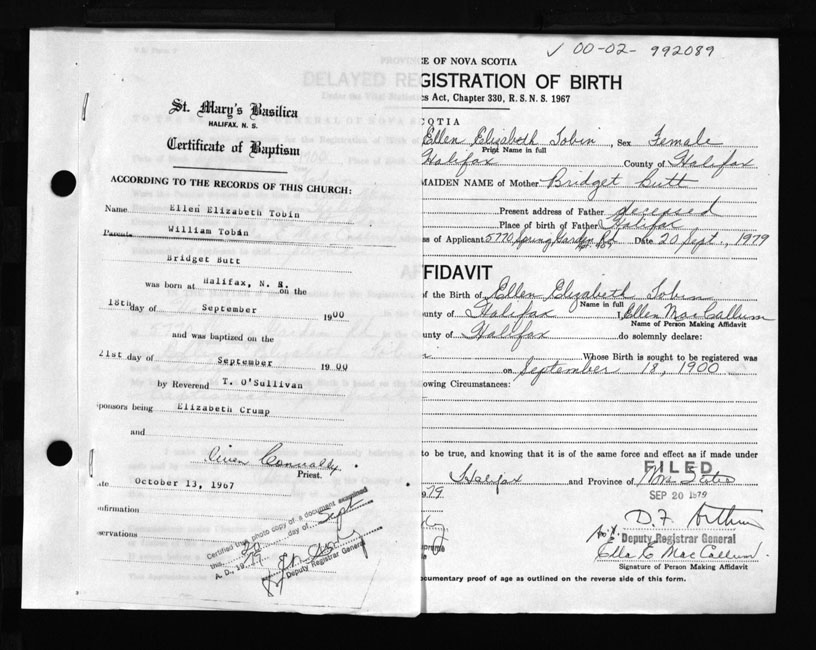 00-02- 992089
St. Mary's Basilica
HALIFAX, N. S.
Certificate of Baptism
ACCORDING TO THE RECORDS OF THIS CHURCH:
Name Ellen Elizabeth Tobin
Parents William Tobin
Bridget Butt
was born at Halifax, N. S. on the
18th day of September 1900
and was baptized on the
21st day of September 1900
by Reverend T. O'Sullivan
ponsors being Elizabeth Crump
and
Connolly
Priest.
ate October 13, 1967
onfirmation
servations
Certified true photo copy of a document examined
this 20 day of Sept
A. D., 1979
Deputy Registrar General
PROVINCE OF NOVA SCOTIA
DELAYED REGISTRATION OF BIRTH
s Act, Chapter 330, R. S. N. S. 1967
COTIA
Ellen Elizabeth Tobin, Sex Female
Print Name in full
Halifax County of Halifax
MAIDEN NAME of Mother Bridget Butt
Present address of Father deceased
Place of birth of Father Halifax
ss of Applicant 5770 Spring Garden Rd. Date 20 Sept., 1979
FFIDAVIT
of the Birth of Ellen Elizabeth Tobin
Name in full
unty of Halifax I, Ellen MacCallum
Name of Person Making Affidavit
unty of Halifax do solemnly declare:
Whose Birth is sought to be registered was
on September 18, 1900
lowing Circumstances:
to be true, and knowing that it is of the same force and effect as if made under
Halifax and Province of Nova Scotia
FILED
SEP 20 1979
79
D. F. Arthur
Deputy Registrar General
Ella E MacCallum.
Signature of Person Making Affidavit
cumentary proof of age as outlined on the reverse side of this form.